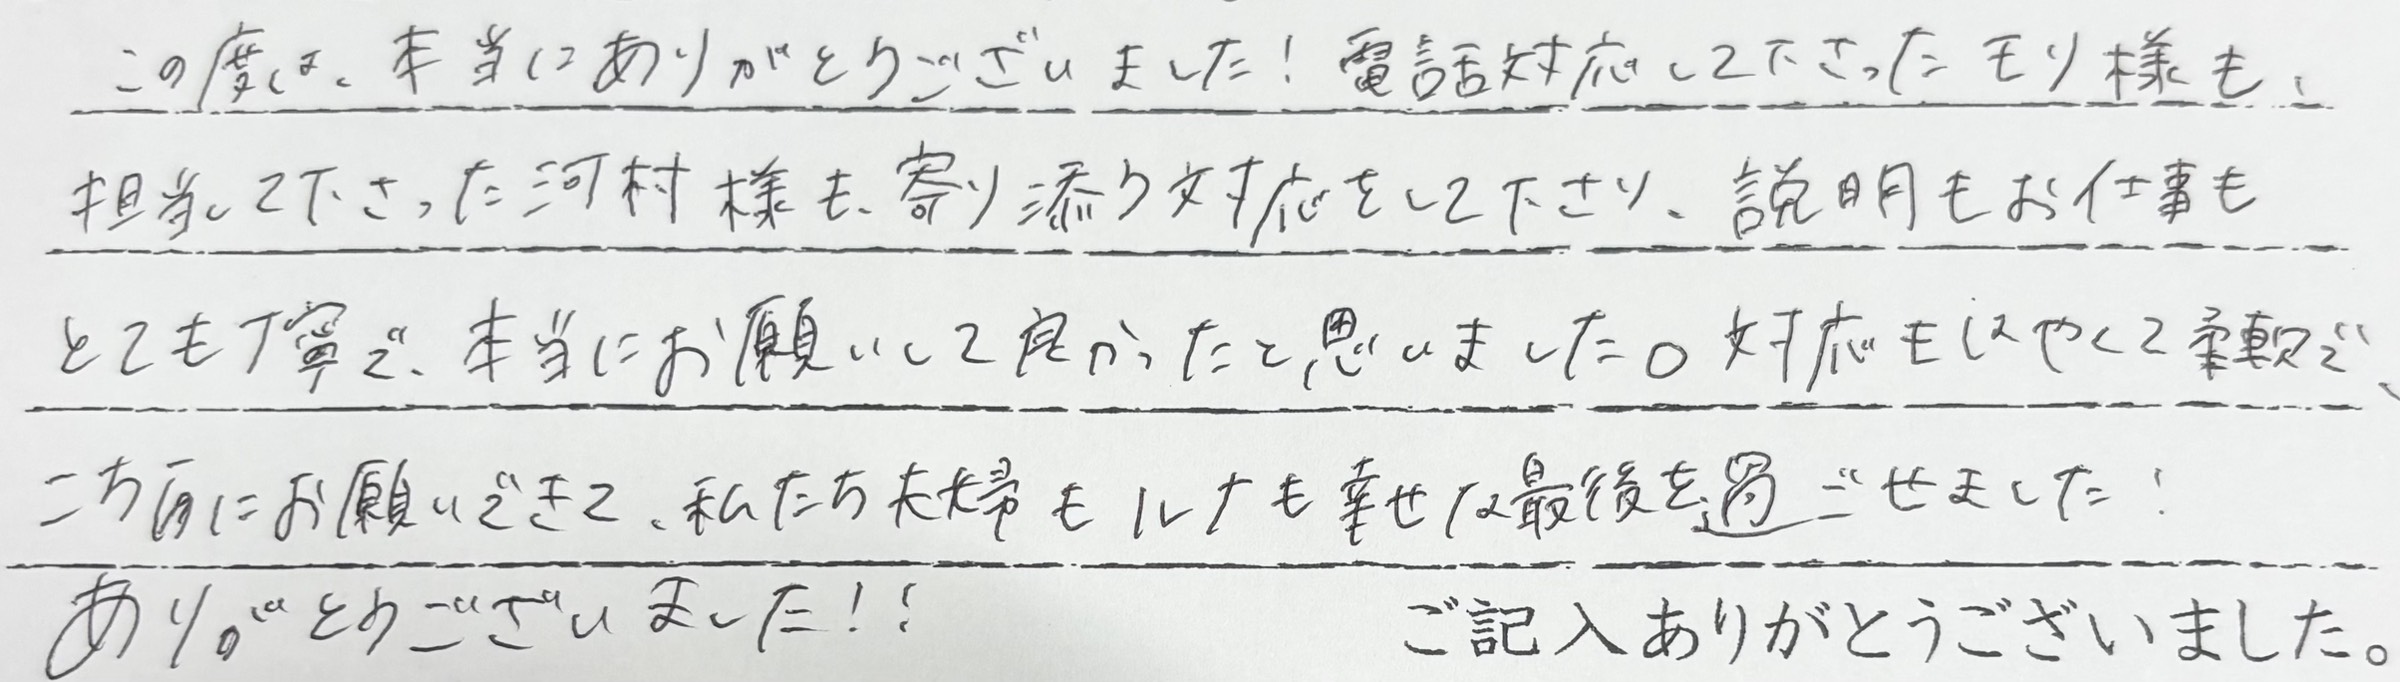 この度は、本当にありがとうございました！電話対応して下さったモリ様も、
担当して下さった河村様も、寄り添う対応をして下さり、説明もお仕事も
とても丁寧で、本当にお願いして良かったと思いました。対応もはやくて柔軟で、
こち何にお願いできて、私たち夫婦もルナも幸せな最後を過ごせました！
ありがとうございました！！
ご記入ありがとうございました。